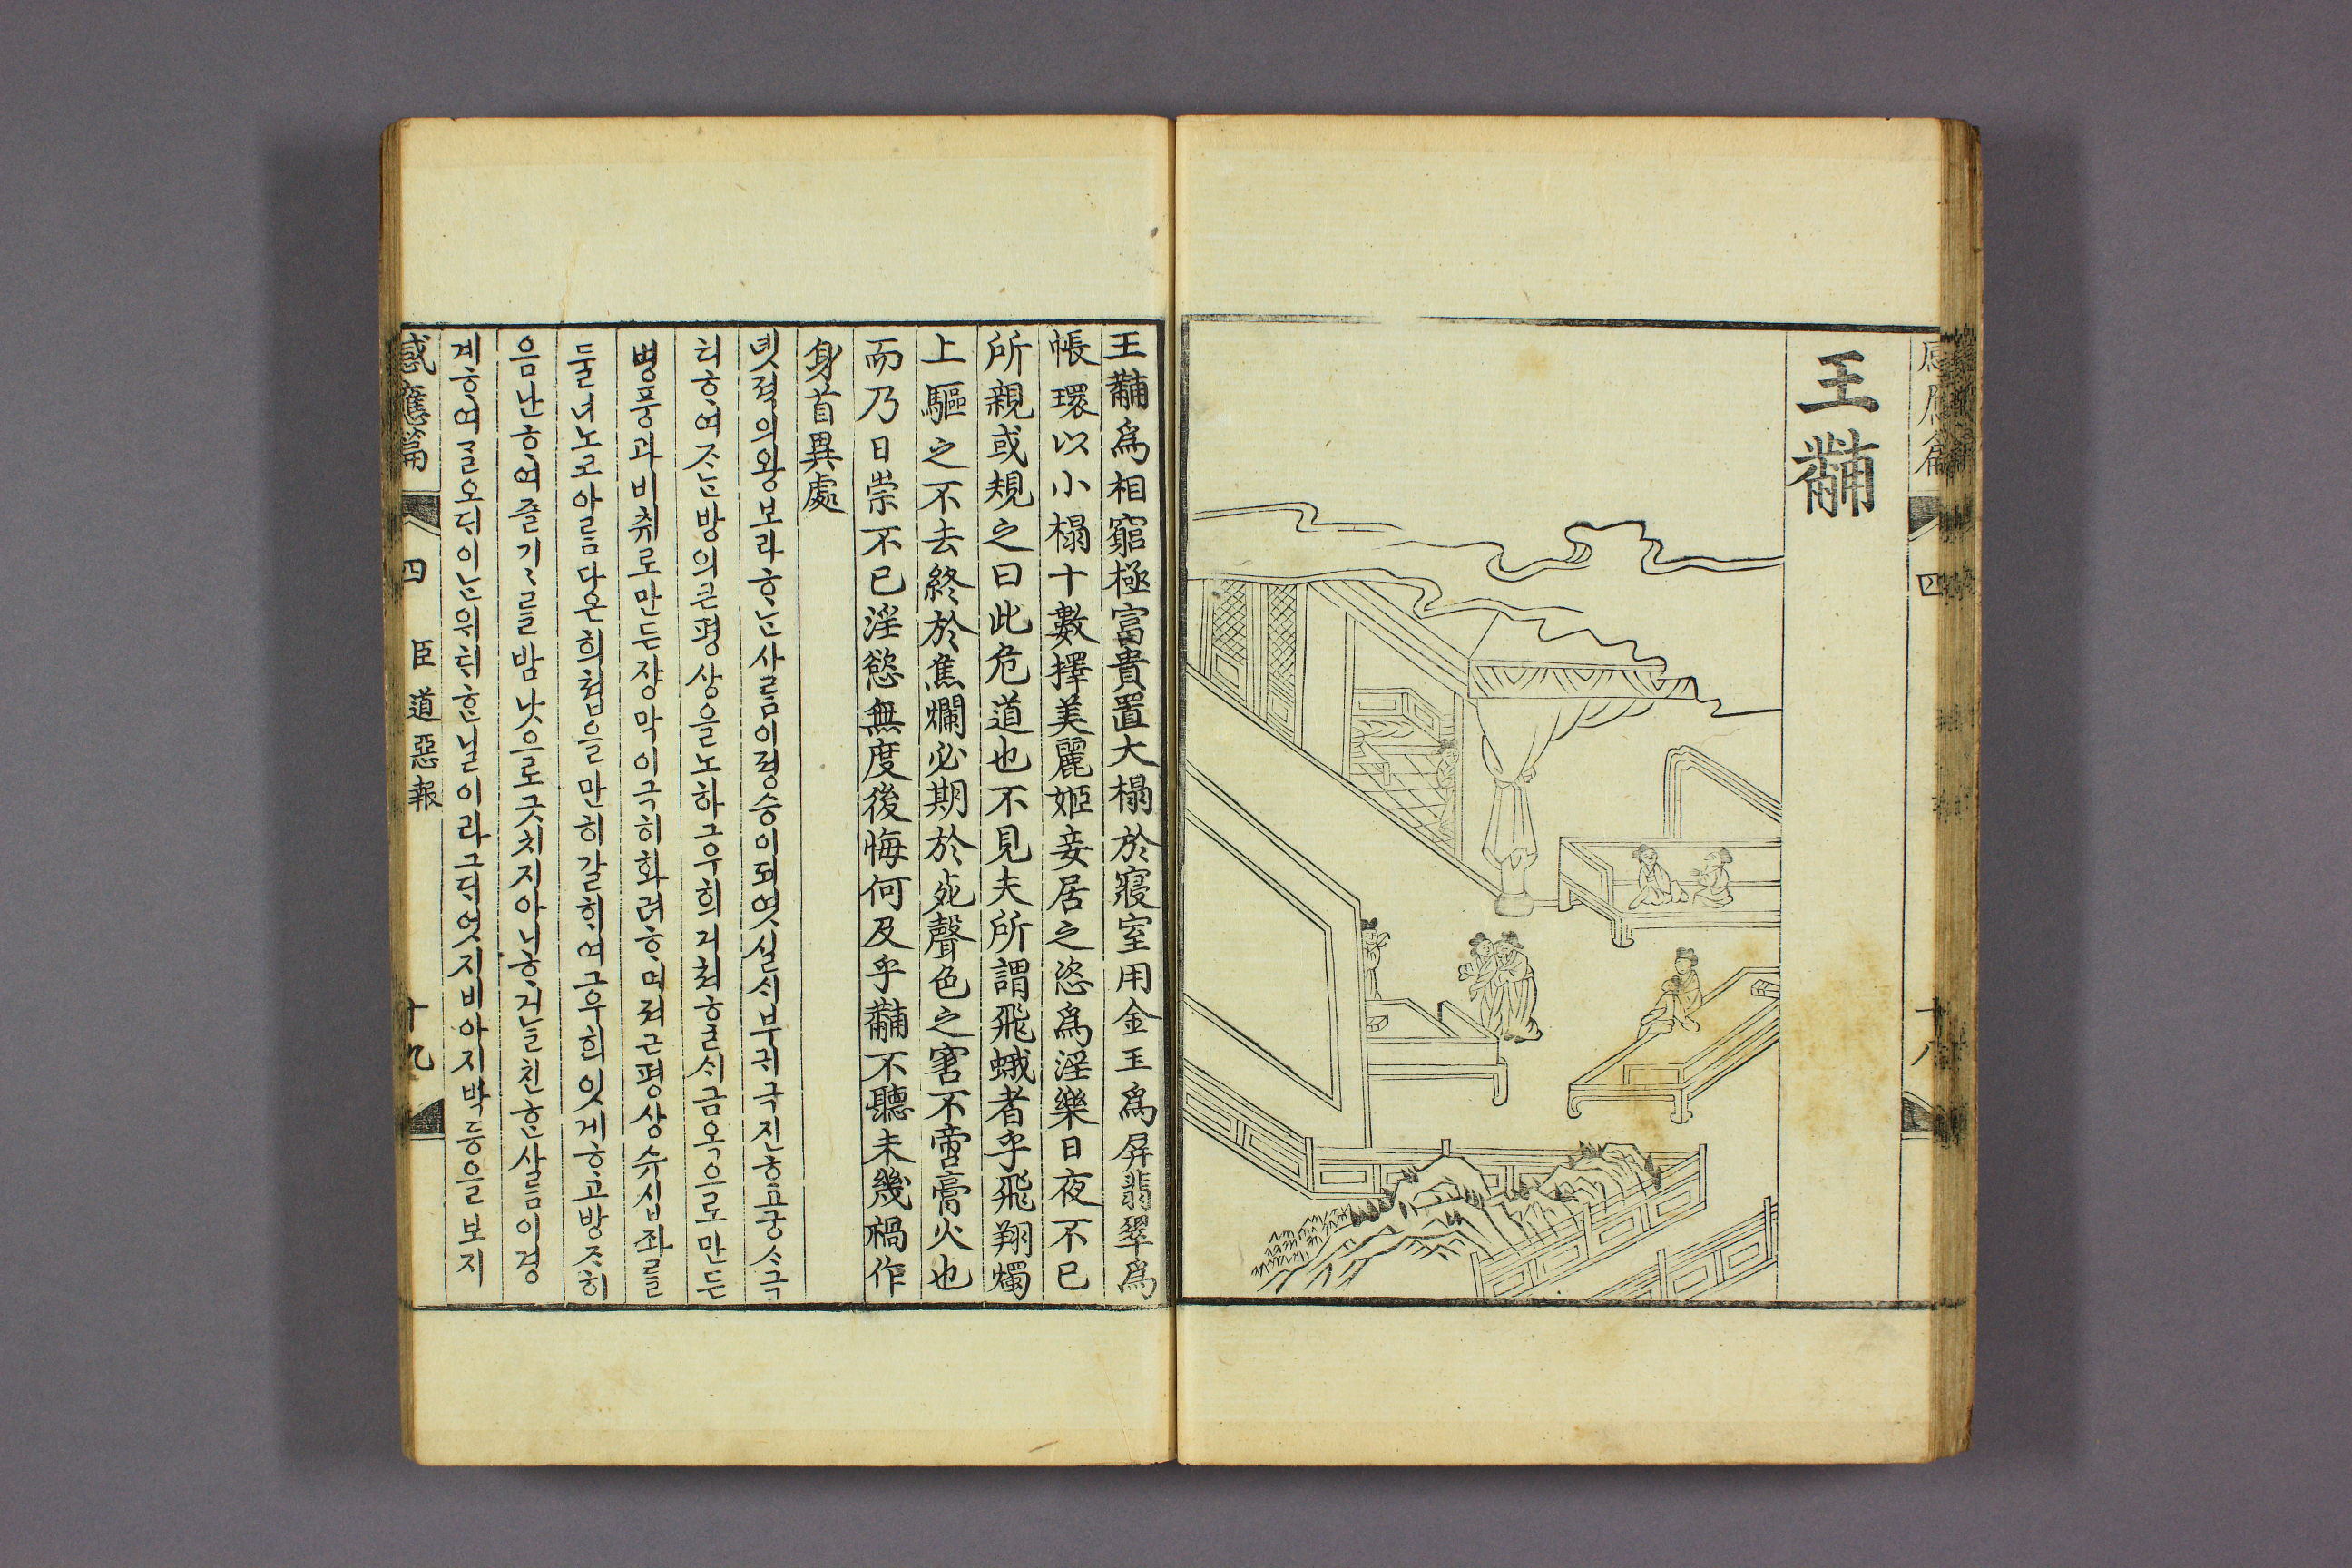 感應篇 四 十八
王黼
王黼爲相窮極富貴置大榻於寢室用金玉爲屛翡翠爲
帳環以小榻十數擇美麗姬妾居之恣爲淫樂日夜不已
所親或規之曰此危道也不見夫所謂飛蛾者乎飛翔燭
上驅之不去終於焦爛必期於死聲色之害不啻膏火也
而乃日崇不已淫慾無度後悔何及乎黼不聽未幾禍作
身首異處
녯젹의왕보라ᄒᆞᄂᆞᆫ사ᄅᆞᆷ이졍승이되엿실시부귀극진ᄒᆞ고궁ᄉᆞ극
치ᄒᆞ여ᄌᆞᄂᆞᆫ방의큰평상을노하그우희거쳐ᄒᆞᆯᄉᆡ금옥으로만든
병풍과비취로만든쟝막이극히화려ᄒᆞ며져근평상수십좌를
둘너노코아름다온희쳡을만히갈히여그우희잇게ᄒᆞ고방ᄌᆞ히
음난ᄒᆞ여즐기기를밤낫으로긋치지아니ᄒᆞ거ᄂᆞᆯ친ᄒᆞᆫ사ᄅᆞᆷ이경
계ᄒᆞ여ᄀᆞᆯ오ᄃᆡ이ᄂᆞᆫ위ᄐᆡᄒᆞᆫ닐이라그ᄃᆡ엇지비아지ᄇᆡᆨ등을보지
感應篇 四 臣道惡報 十九